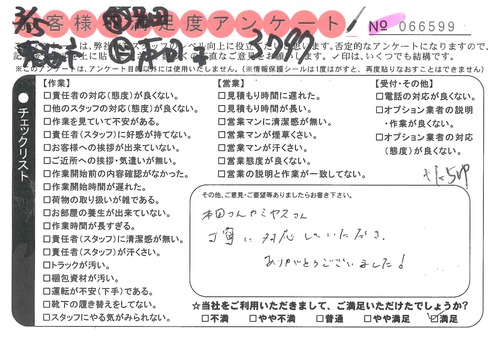 お客様満足度アンケート
№ 066599
3097
※このアンケートは、アンケート目的以外には使用いたしません。(※情報保護シールは1度はがすと、再度貼りなおすことはできません)
チェックリスト
【作業】
□責任者の対応(態度)が良くない。
□他のスタッフの対応(態度)が良くない。
□作業を見ていて不安がある。
□責任者(スタッフ)に好感が持てない。
□お客様への挨拶が出来ていない。
□ご近所への挨拶・気遣いが無い。
□作業開始前の内容確認がなかった。
□作業開始時間が遅れた。
□荷物の取り扱いが雑である。
□お部屋の養生が出来ていない。
□作業時間が長すぎる。
□責任者(スタッフ)に清潔感が無い。
□責任者(スタッフ)が汗くさい。
□トラックが汚い。
□梱包資材が汚い。
□運転が不安(下手)である。
□靴下の履き替えをしてない。
□スタッフにやる気がみられない。
【営業】
□見積もり時間に遅れた。
□見積もり時間が長い。
□営業マンに清潔感が無い。
□営業マンが煙草くさい。
□営業マンが汗くさい。
□営業態度が良くない。
□営業の説明と作業が一致してない。
【受付・その他】
□電話の対応が良くない。
□オプション業者の説明・作業が良くない。
□オプション業者の対応(態度)が良くない。
その他、ご意見・ご要望等ありましたらお書き下さい。
本田さんカミヤスさん
丁寧に対応していただき
ありがとうございました!
☆当社をご利用いただきまして、ご満足いただけたでしょうか?
□不満 □やや不満 □普通 □やや満足 ☑満足